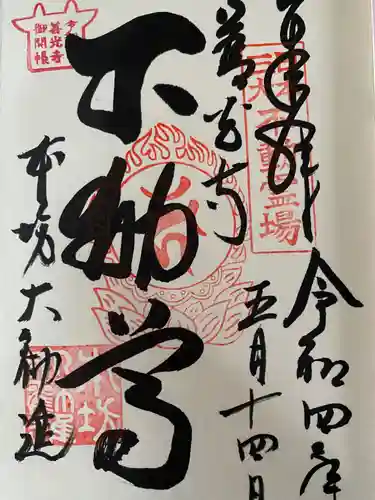 奉拝
令和四年
五月十四日
善光寺
不動尊
本坊大勧進
不動霊場
善光寺
御開帳